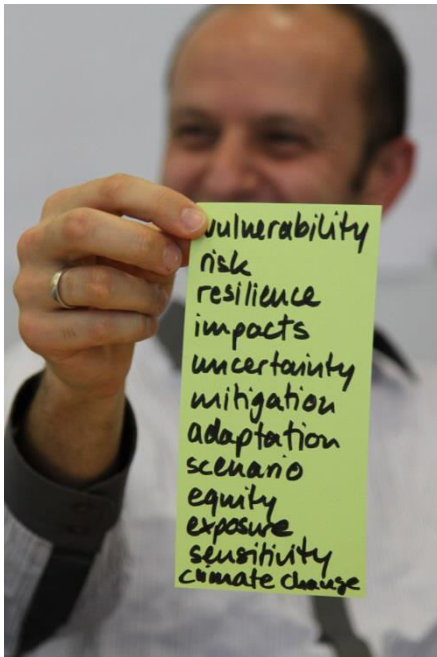 vulnerability
risk
resilience
impacts
uncertainty
mitigation
adaptation
scenario
equity
exposure
sensitivity
climate change